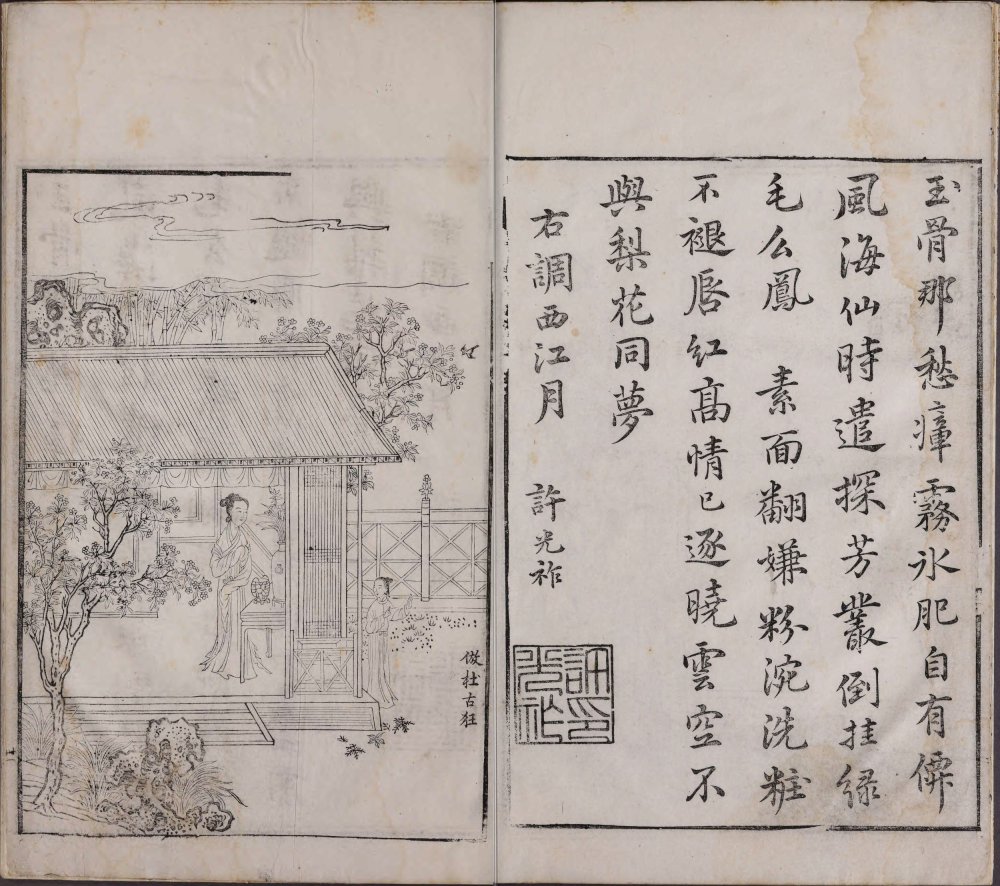 玉骨那愁瘴霧氷肌自有僊
風海仙時遣探芳叢倒挂緑
毛么鳳　素面翻嫌粉涴洗粧
不褪唇紅高情已逐曉雲空不
與梨花同夢
右調西江月　許光祚
許印光祚
倣杜古狂